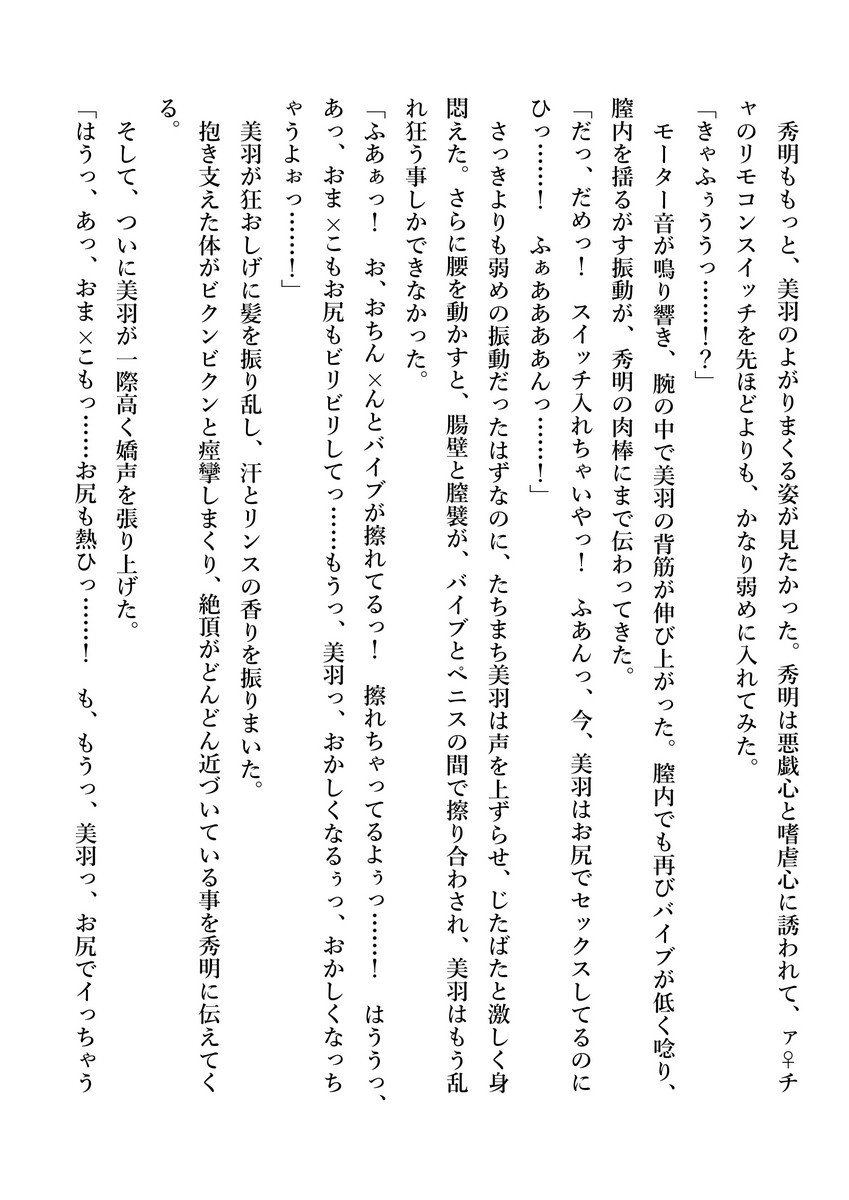 秀明ももっと、美羽のよがりまくる姿が見たかった。秀明は悪戯心と嗜虐心に誘われて、ァ♀チ
ャのリモコンスイッチを先ほどよりも、かなり弱めに入れてみた。
「きゃふぅううっ……！？」
　モーター音が鳴り響き、腕の中で美羽の背筋が伸び上がった。膣内でも再びバイブが低く唸り、
膣内を揺るがす振動が、秀明の肉棒にまで伝わってきた。
「だっ、だめっ！　スイッチ入れちゃいやっ！　ふあんっ、今、美羽はお尻でセックスしてるのに
ひっ……！　ふぁああああんっ……！」
　さっきよりも弱めの振動だったはずなのに、たちまち美羽は声を上ずらせ、じたばたと激しく身
悶えた。さらに腰を動かすと、腸壁と膣襞が、バイブとペニスの間で擦り合わされ、美羽はもう乱
れ狂う事しかできなかった。
「ふあぁっ！　お、おちん×んとバイブが擦れてるっ！　擦れちゃってるよぅっ……！　はううっ、
あっ、おま×こもお尻もビリビリしてっ……もうっ、美羽っ、おかしくなるぅっ、おかしくなっち
ゃうよぉっ……！」
　美羽が狂おしげに髪を振り乱し、汗とリンスの香りを振りまいた。
　抱き支えた体がビクンビクンと痙攣しまくり、絶頂がどんどん近づいている事を秀明に伝えてく
る。
　そして、ついに美羽が一際高く嬌声を張り上げた。
「はうっ、あっ、おま×こもっ……お尻も熱ひっ……！　も、もうっ、美羽っ、お尻でイっちゃう